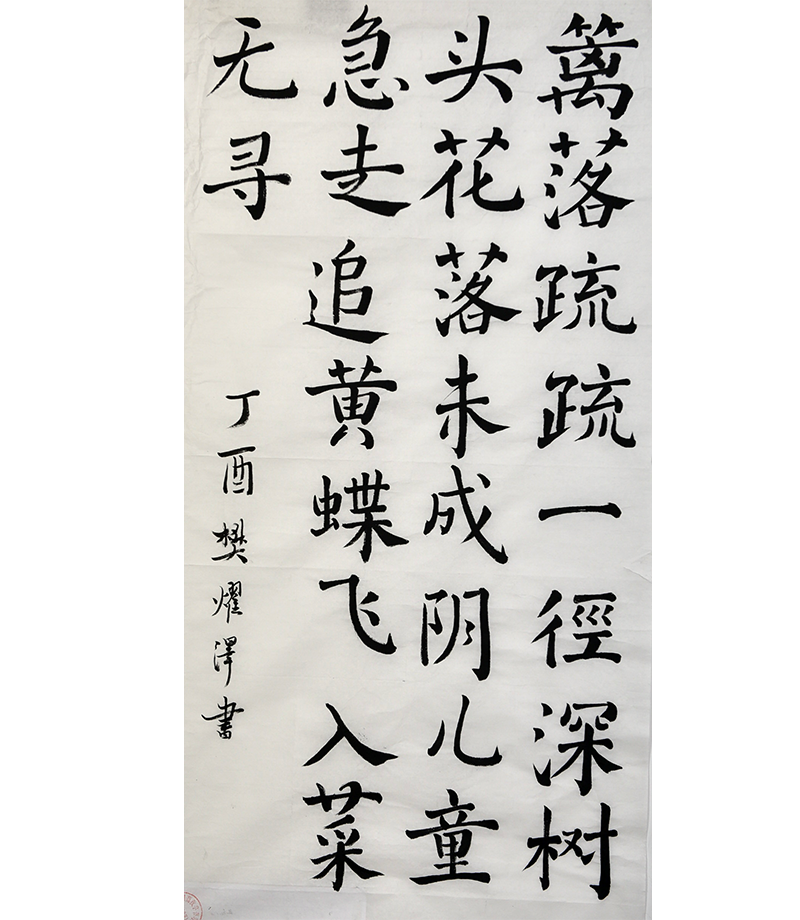 篱落疏疏一徑深树
头花落未成阴儿童
急走追黄蝶飞入菜
无寻
丁酉樊燿澤書